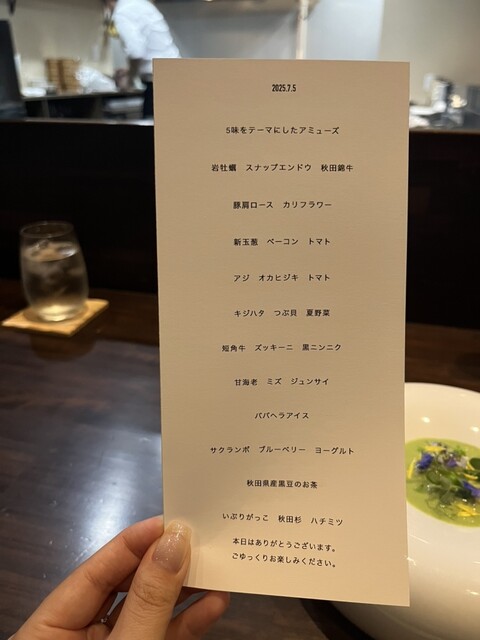 2025.7.5
5味をテーマにしたアミューズ
岩牡蠣　スナップエンドウ　秋田錦牛
豚肩ロース　カリフラワー
新玉葱　ベーコン　トマト
アジ　オカヒジキ　トマト
キジハタ　つぶ貝　夏野菜
短角牛　ズッキーニ　黒ニンニク
甘海老　ミズ　ジュンサイ
ババヘラアイス
サクランボ　ブルーベリー　ヨーグルト
秋田県産黒豆のお茶
いぶりがっこ　秋田杉　ハチミツ
本日はありがとうございます。
ごゆっくりお楽しみください。